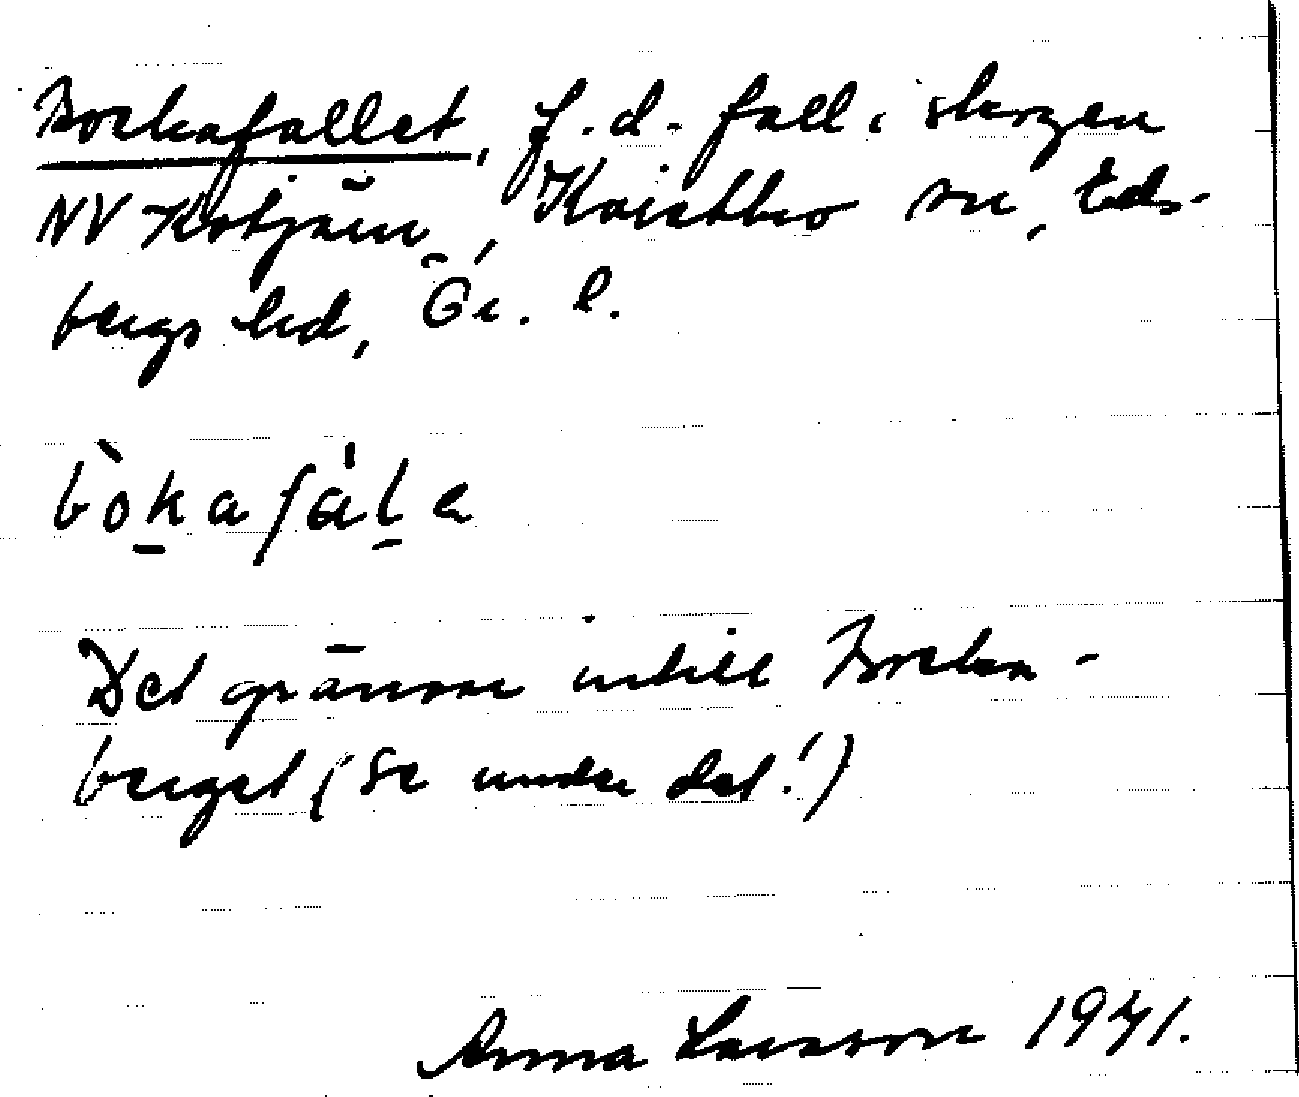 Bockafallet, f.d. fall i skogen
NV Kotjärn, Kvistbro sn, Eds-
bergs hd, Ör. l.
bòkafál̠a
Det gränsar intill Bocka-
berget (se under det!)
Anna Larsson 1941.